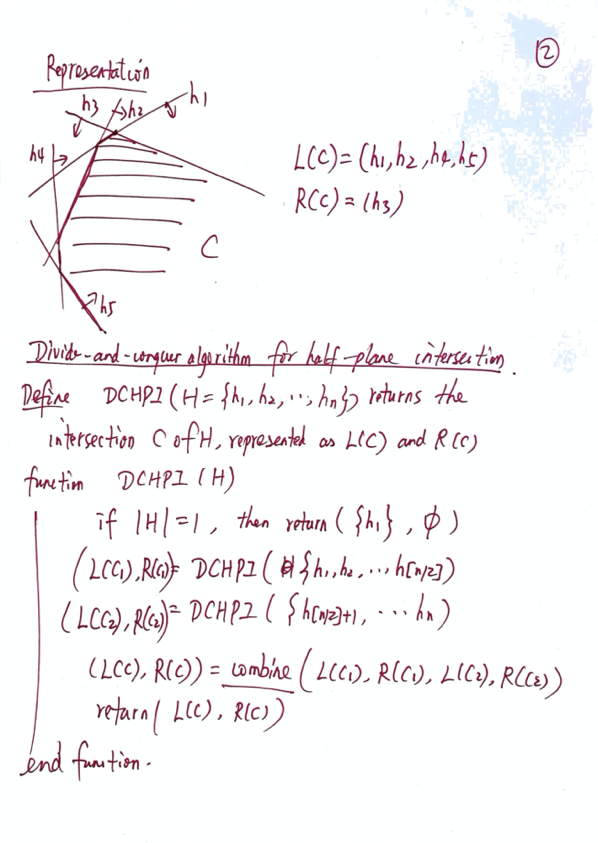 ②
Representation
h3 h2 h1
h4
L(C)=(h1,h2,h4,h5)
R(C)=(h3)
C
h5
Divide-and-conquer algorithm for half-plane intersection.
Define DCHPI(H={h1,h2,...,hn}) returns the
intersection C of H, represented as L(C) and R(C)
function DCHPI(H)
if |H|=1, then return({h1}, ϕ)
(L(C1),R(C1)= DCHPI({h1,h2,...h[n/2])
(L(C2),R(C2)= DCHPI({h[n/2]+1, ...hn)
(L(C), R(C)) = combine(L(C1), R(C1), L(C2), R(C2))
return( L(C), R(C))
end function.